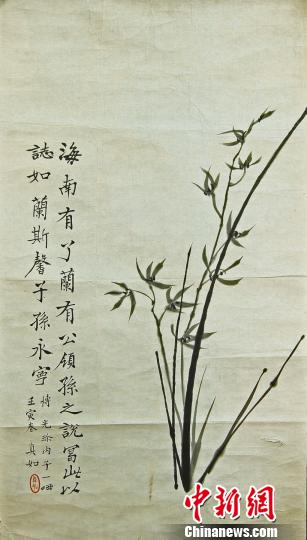 海南有蘭有公領孫之說寫此以
誌如蘭斯馨子孫永寧
博內子一哂
壬寅真如
中新网
www.chinanews.com